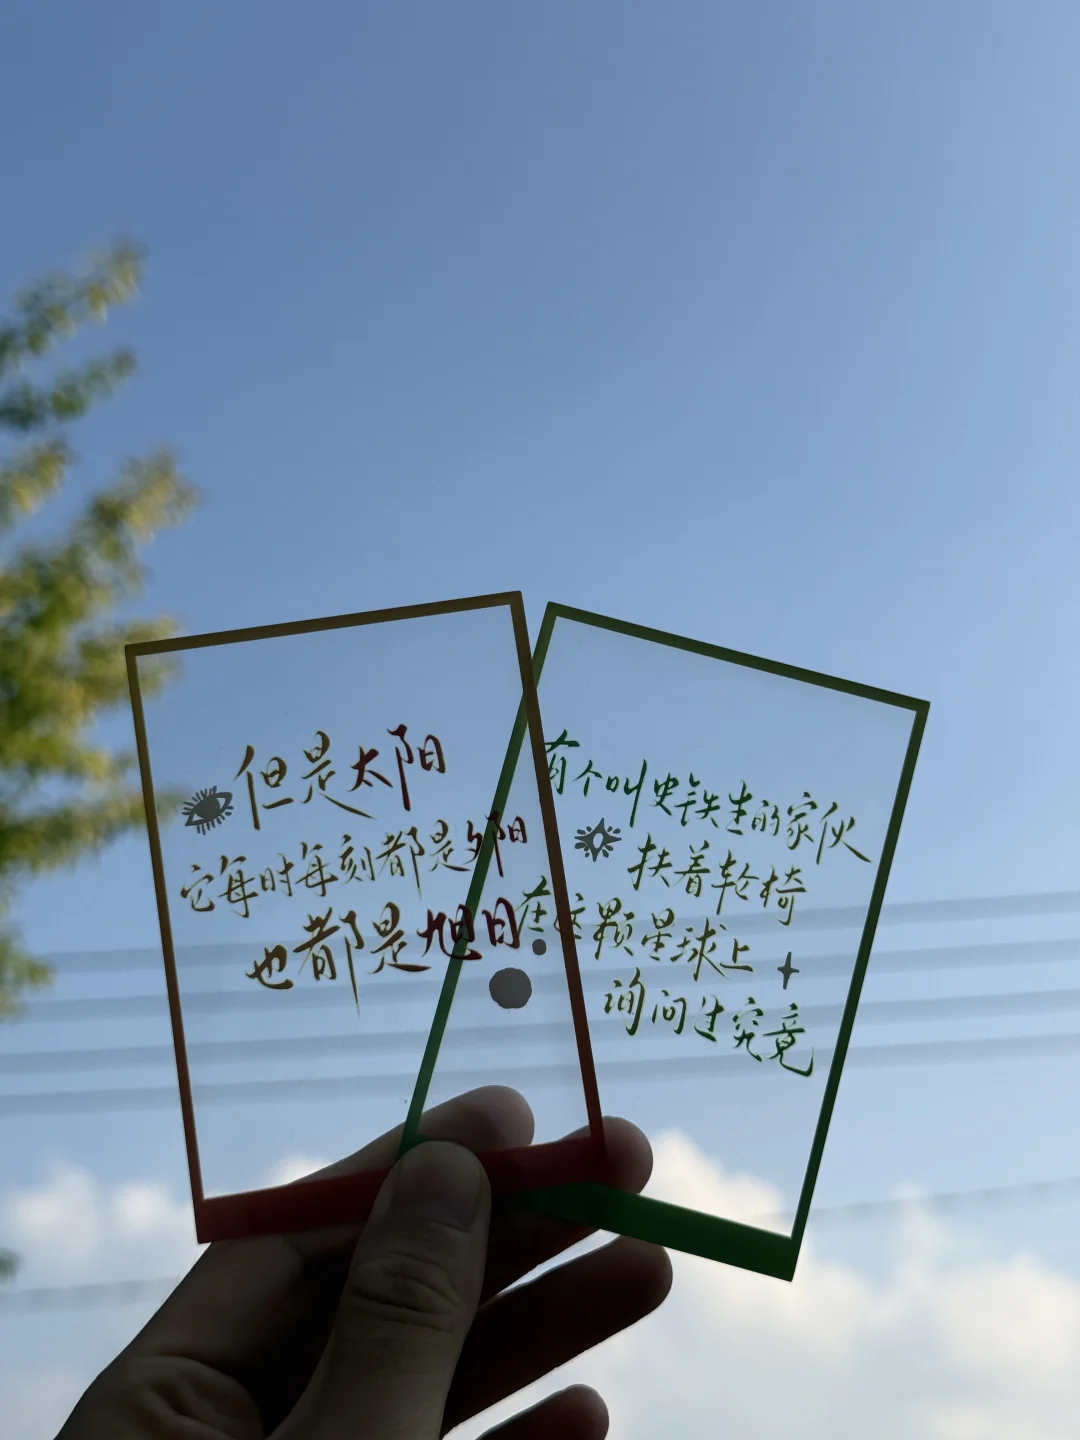 但是太阳
它每时每刻都是夕阳
也都是旭日
有个叫史铁生的家伙
扶着轮椅
在这颗星球上
询问过究竟